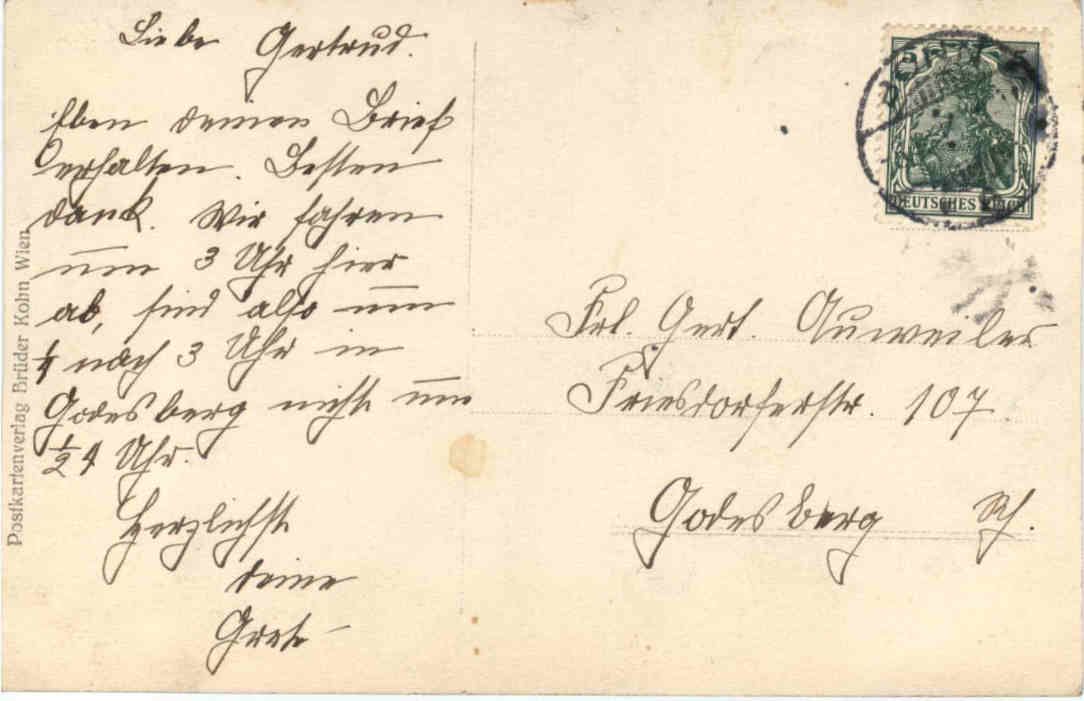 Liebe Gertrud.
Eben deinen Brief
erhalten. Besten
Dank. Wir fahren
um 3 Uhr hier
ab, sind also um
1/4 nach 3 Uhr in
Godesberg nicht um
1/2 4 Uhr.
Herzlichst
deine
Grete
Postkartenverlag Brüder Kohn Wien
DEUTSCHES REICH
Frl. Gert. Auweiler
Friesdorferstr. 107
Godesberg Rh.